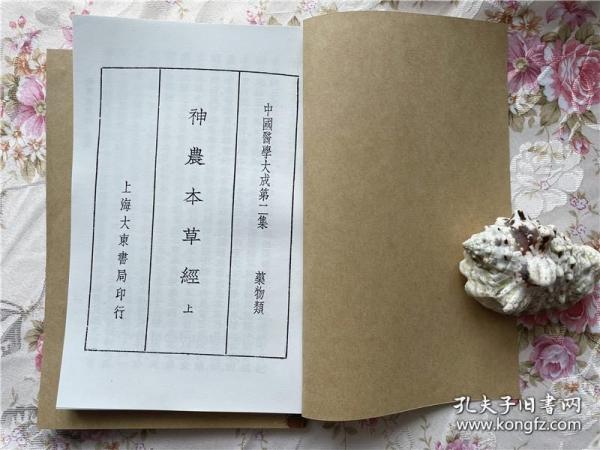 中國醫學大成第二集 藥物類
神農本草經 上
上海大東書局印行
孔夫子旧书网
www.kongfz.com